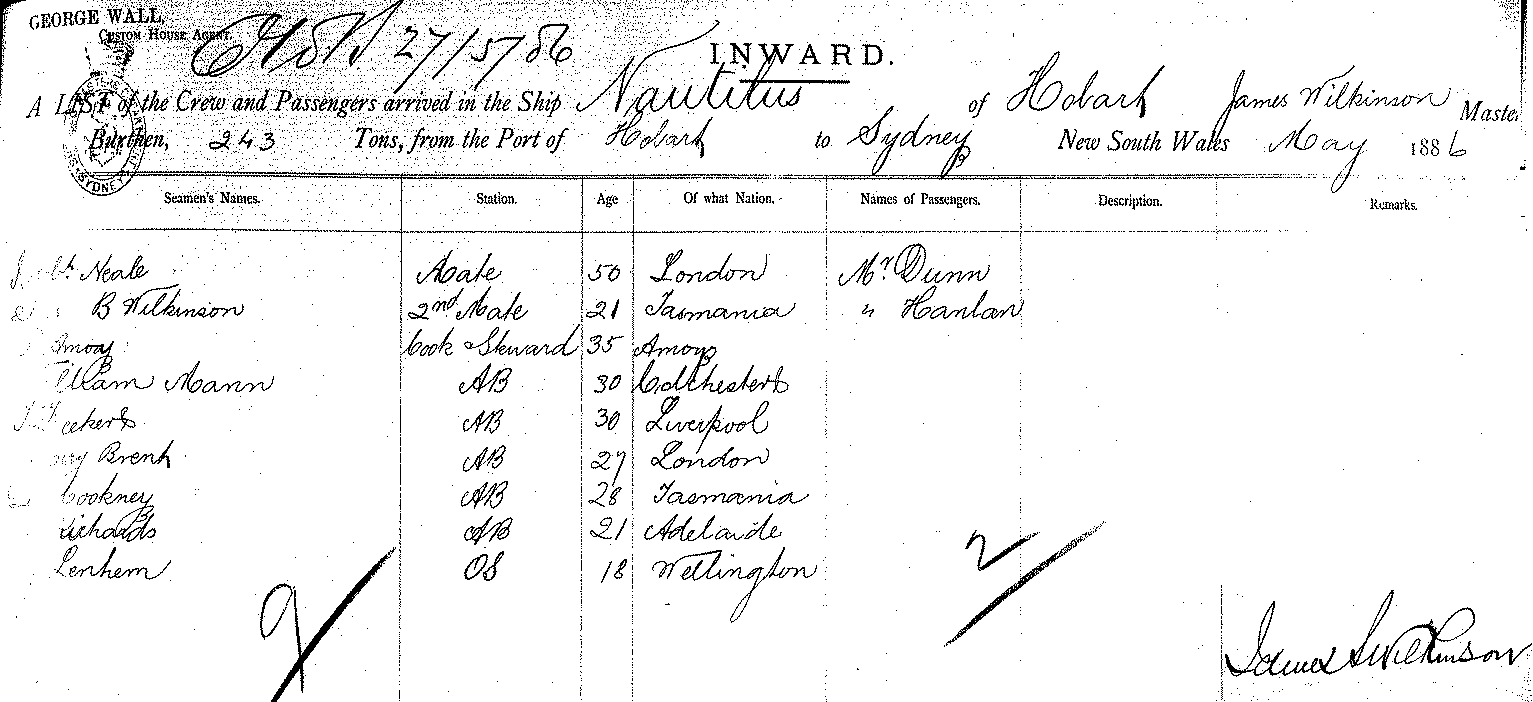 GEORGE WALL,
CUSTOM HOUSE AGENT.
27/5/86
INWARD.
A LIST of the Crew and Passengers arrived in the Ship Nautilus of Hobart James Wilkinson Master
Burthen, 243 Tons, from the Port of Hobart to Sydney New South Wales May 1886
Seamen's Names. Station. Age Of what Nation. Names of Passengers. Description. Remarks.
Neale Mate 50 London Mr. Dunn
B Wilkinson 2nd Mate 21 Tasmania " Hanlan
Amoy Cook & Steward 35 Amoy
Mann AB 30 Colchester
AB 30 Liverpool
Brent AB 27 London
Cookney AB 28 Tasmania
Richards AB 21 Adelaide
Lenhem OS 18 Wellington
9 2
James S Wilkinson
SYDNEY